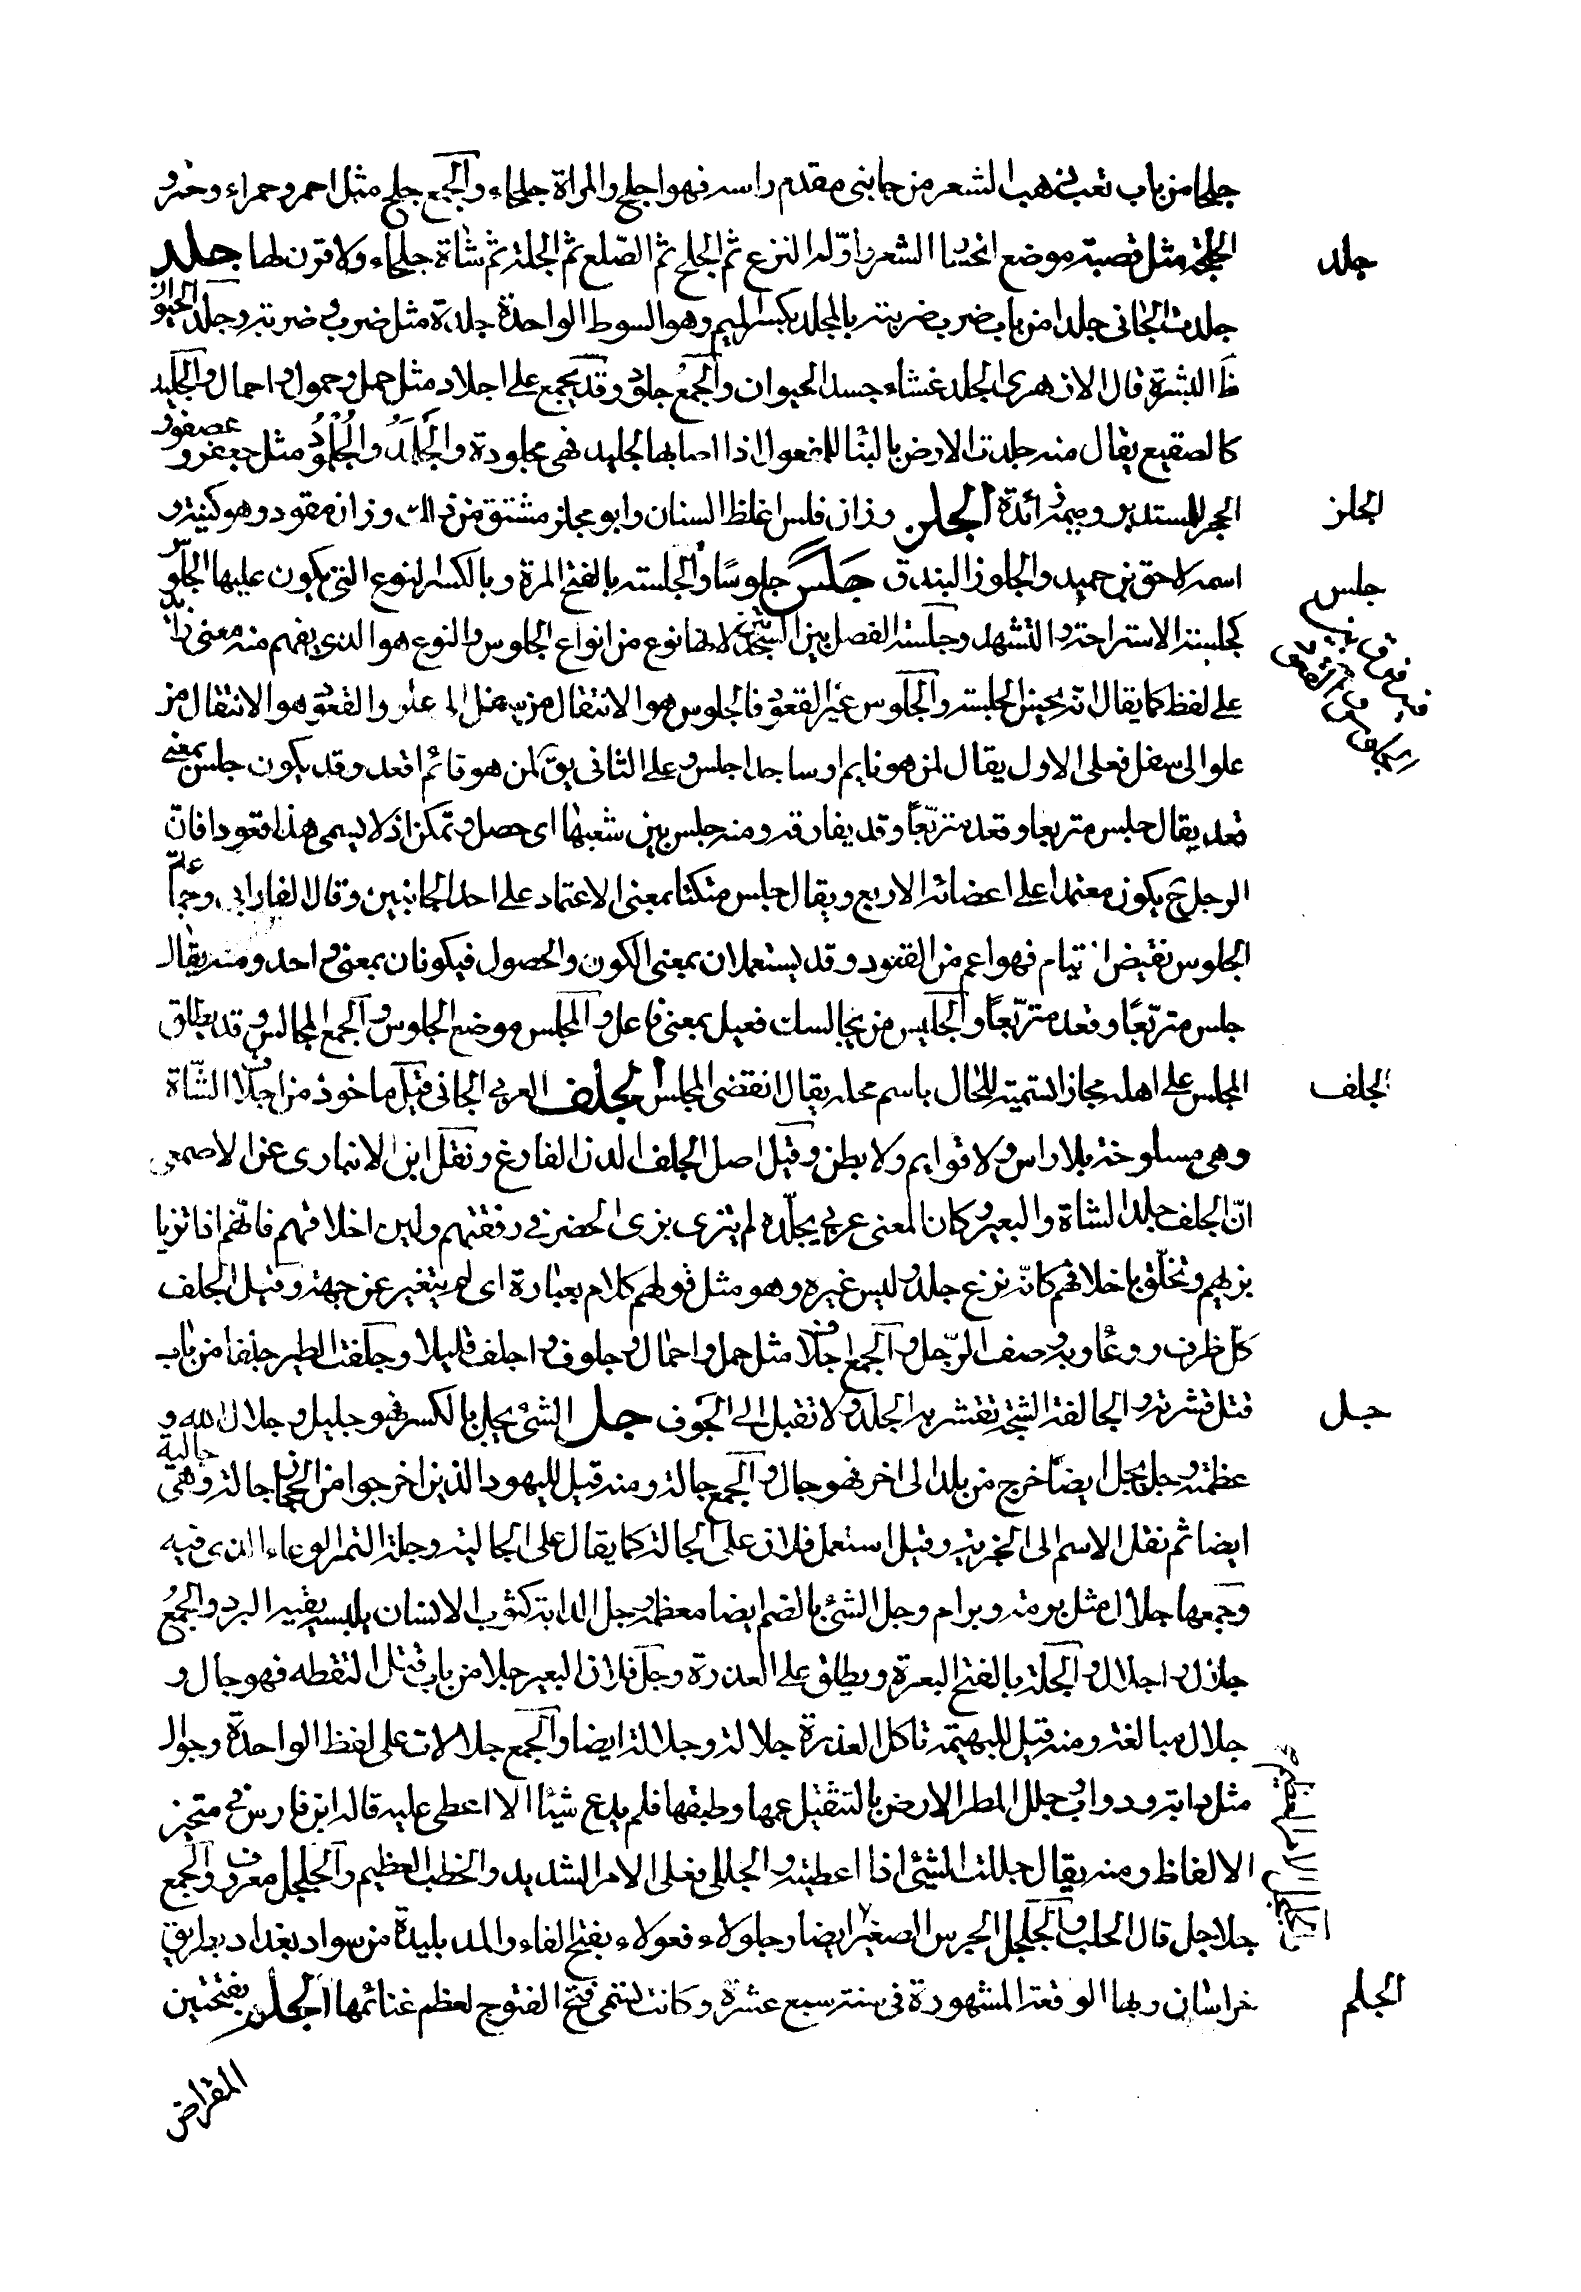 جلحا من باب تعب ذهب الشعر من جابنى مقدم راسه فهو اجلح والمراة جلحاء والجمع جلح مثل احمر وحمراء وحمر و
الجلحة مثل قصبة موضع انحسار الشعر واوّله النزع ثم الجلح ثم الصّلع ثم الجلة ثم شاة جلحاء ولا قرن لها جلد
جلد
جلدت الجانى جلدا من باب ضرب ضربته بالمجلد بكسر الميم وهو السوط الواحدة جلدة مثل ضرب ضربة وجلد الحيوان
ظاالبشرة قال الازهرى الجلد غشاء جسد الحيوان والجمع جلود وقد يجمع على اجلاد مثل حمل وحمول واحمال والجليد
كالصقيع يقال منه جلدت الارض بالبنا للمفعول اذا اصابها الجليد فهى مجلودة والجَلْمَدُ والجُلْمُودُ مثل جعفر وعصفور
الحجر المستدير وميمه زائدة الجلز وزان فلس اغلظ السنان وابو مجلز مشتق من ذلك وزان مقود وهو كنيته و
الجلز
اسمه لاحق بن حميد والجلوز البندق جَلَسَ جلوسًا والجلسته بالفتح المرة وبالكسر لنوع التى يكون عليها الجلوس
جلس
كجلسة الاستراحة والتشهد وجلسة الفصل بين السجدتين لانها نوع من انواع الجلوس والنوع هو الذى يفهم منه معنى زائد
على لفظ كما يقال انّه لحسن الجلسة والجلوس غير القعود فالجلوس هو الانتقال من سفل الى علو والقعود هو الانتقال من
علو الى سفل فعلى الاول يقال لمن هو نايم او ساجدا اجلس وعلى الثانى يق لمن هو قائم اقعد وقد يكون جلس بمعنى
قعد يقال جلس متربعا وقعد متربّعًا وقد يفارقه ومنه جلس بين شعبها اى حصل وتمكن اذ لا يسمى هذا قعودا فانّ
الرجل ح يكون معتمدا على اعضائه الاربع ويقال جلس متكئا بمعنى الاعتماد على احد الجانبين وقال الفارابى وجماعة
الجلوس نقيض القيام فهو اعم من القعود وقد يستعملان بمعنى الكون والحصول فيكونان بمعنى واحد ومنه يقال
جلس متربّعًا وقعد متربّعًا والجليس من يجالسك فعيل بمعنى فاعل والمجلس موضع الجلوس والجمع المجالس وقد يطلق
المجلس على اهله مجازا تسمية للحال باسم محله يقال انقضى المجلس الجلف العربى الجانى قيل ماخوذ من اجلاف الشّاة
الجلف
وهى مسلوخة بلا راس ولا قوايم ولا بطن وقيل اصل الجلف الدن الفارغ ونقل ابن الانبارى عن الاصمعى
انّ الجلف جلد الشاة والبعير وكان المعنى عربى بجلّده لم يتزى بزى الحضر فى رفقتهم ولين اخلاقهم فانّهم اذا تزيا
بزيهم وتخلّق باخلاقهم كانّه نزع جلده ولبس غيره وهو مثل قولهم كلام بعبارة اى لم يتغير عن جهته وقيل الجلف
كلّ ظرف ووعاء وبه وصف الرّجل والجمع اجلاف مثل حمل واحمال وجلوف واجلف قليلا وجلفت الطير جلفا من باب
قتل قشرته والجالفة الشجة تقشره الجلد ولا تقبل الى الجوف جل الشئ يجل بالكسر فهو جليل وجلال الله و
جل
عظمته وجل يجل ايضا خرج من بلد الى اخر فهو جال والجمع جالة ومنه قيل لليهود الذين اخرجوا من الحجاز جالة وهى جالية
ايضا ثم نقل الاسم الى الجزية وقيل استعمل فلان على الجالة كما يقال على الجالية وجلة التمر الوعاء الذى فيه
وجمعها جلال مثل برمة وبرام وجل الشئ بالضم ايضا معظمه وجل الدابة كثوب الانسان يلبسه يقيه البرد والجمع
جلال واجلال والجلة بالفتح البعرة ويطلق على العذرة وجل فلان البعير جلا من باب قتل التقطه فهو جال و
جلال مبالغة ومنه قيل للبهيمة تاكل العذرة جلالة وجلالة ايضا والجمع جلالات على لفظ الواحدة وجوال
مثل دابة ودواب وجلل المطر الارض بالتثقيل عمها وطبقها فلم يدع شيئا الا اعطى عليه قاله ابن فارس فى متخير
الالفاظ ومنه يقال جللت الشئ اذا اعطيته والجللى فعلى الامر الشديد والخطب العظيم والجلجل معروف والجمع
جلاجل قال الحلب والجلجل الجرس الصغير ايضا وجلولاء فعولاء بفتح الفاء والمد بليدة من سواد بغداد بطريق
خراسان وبها الوقعة المشهورة فى سنة سبع عشرة وكانت تسمى فتح الفتوح لعظم غنائمها الجلم بفتحتين
الجلم
المقراض